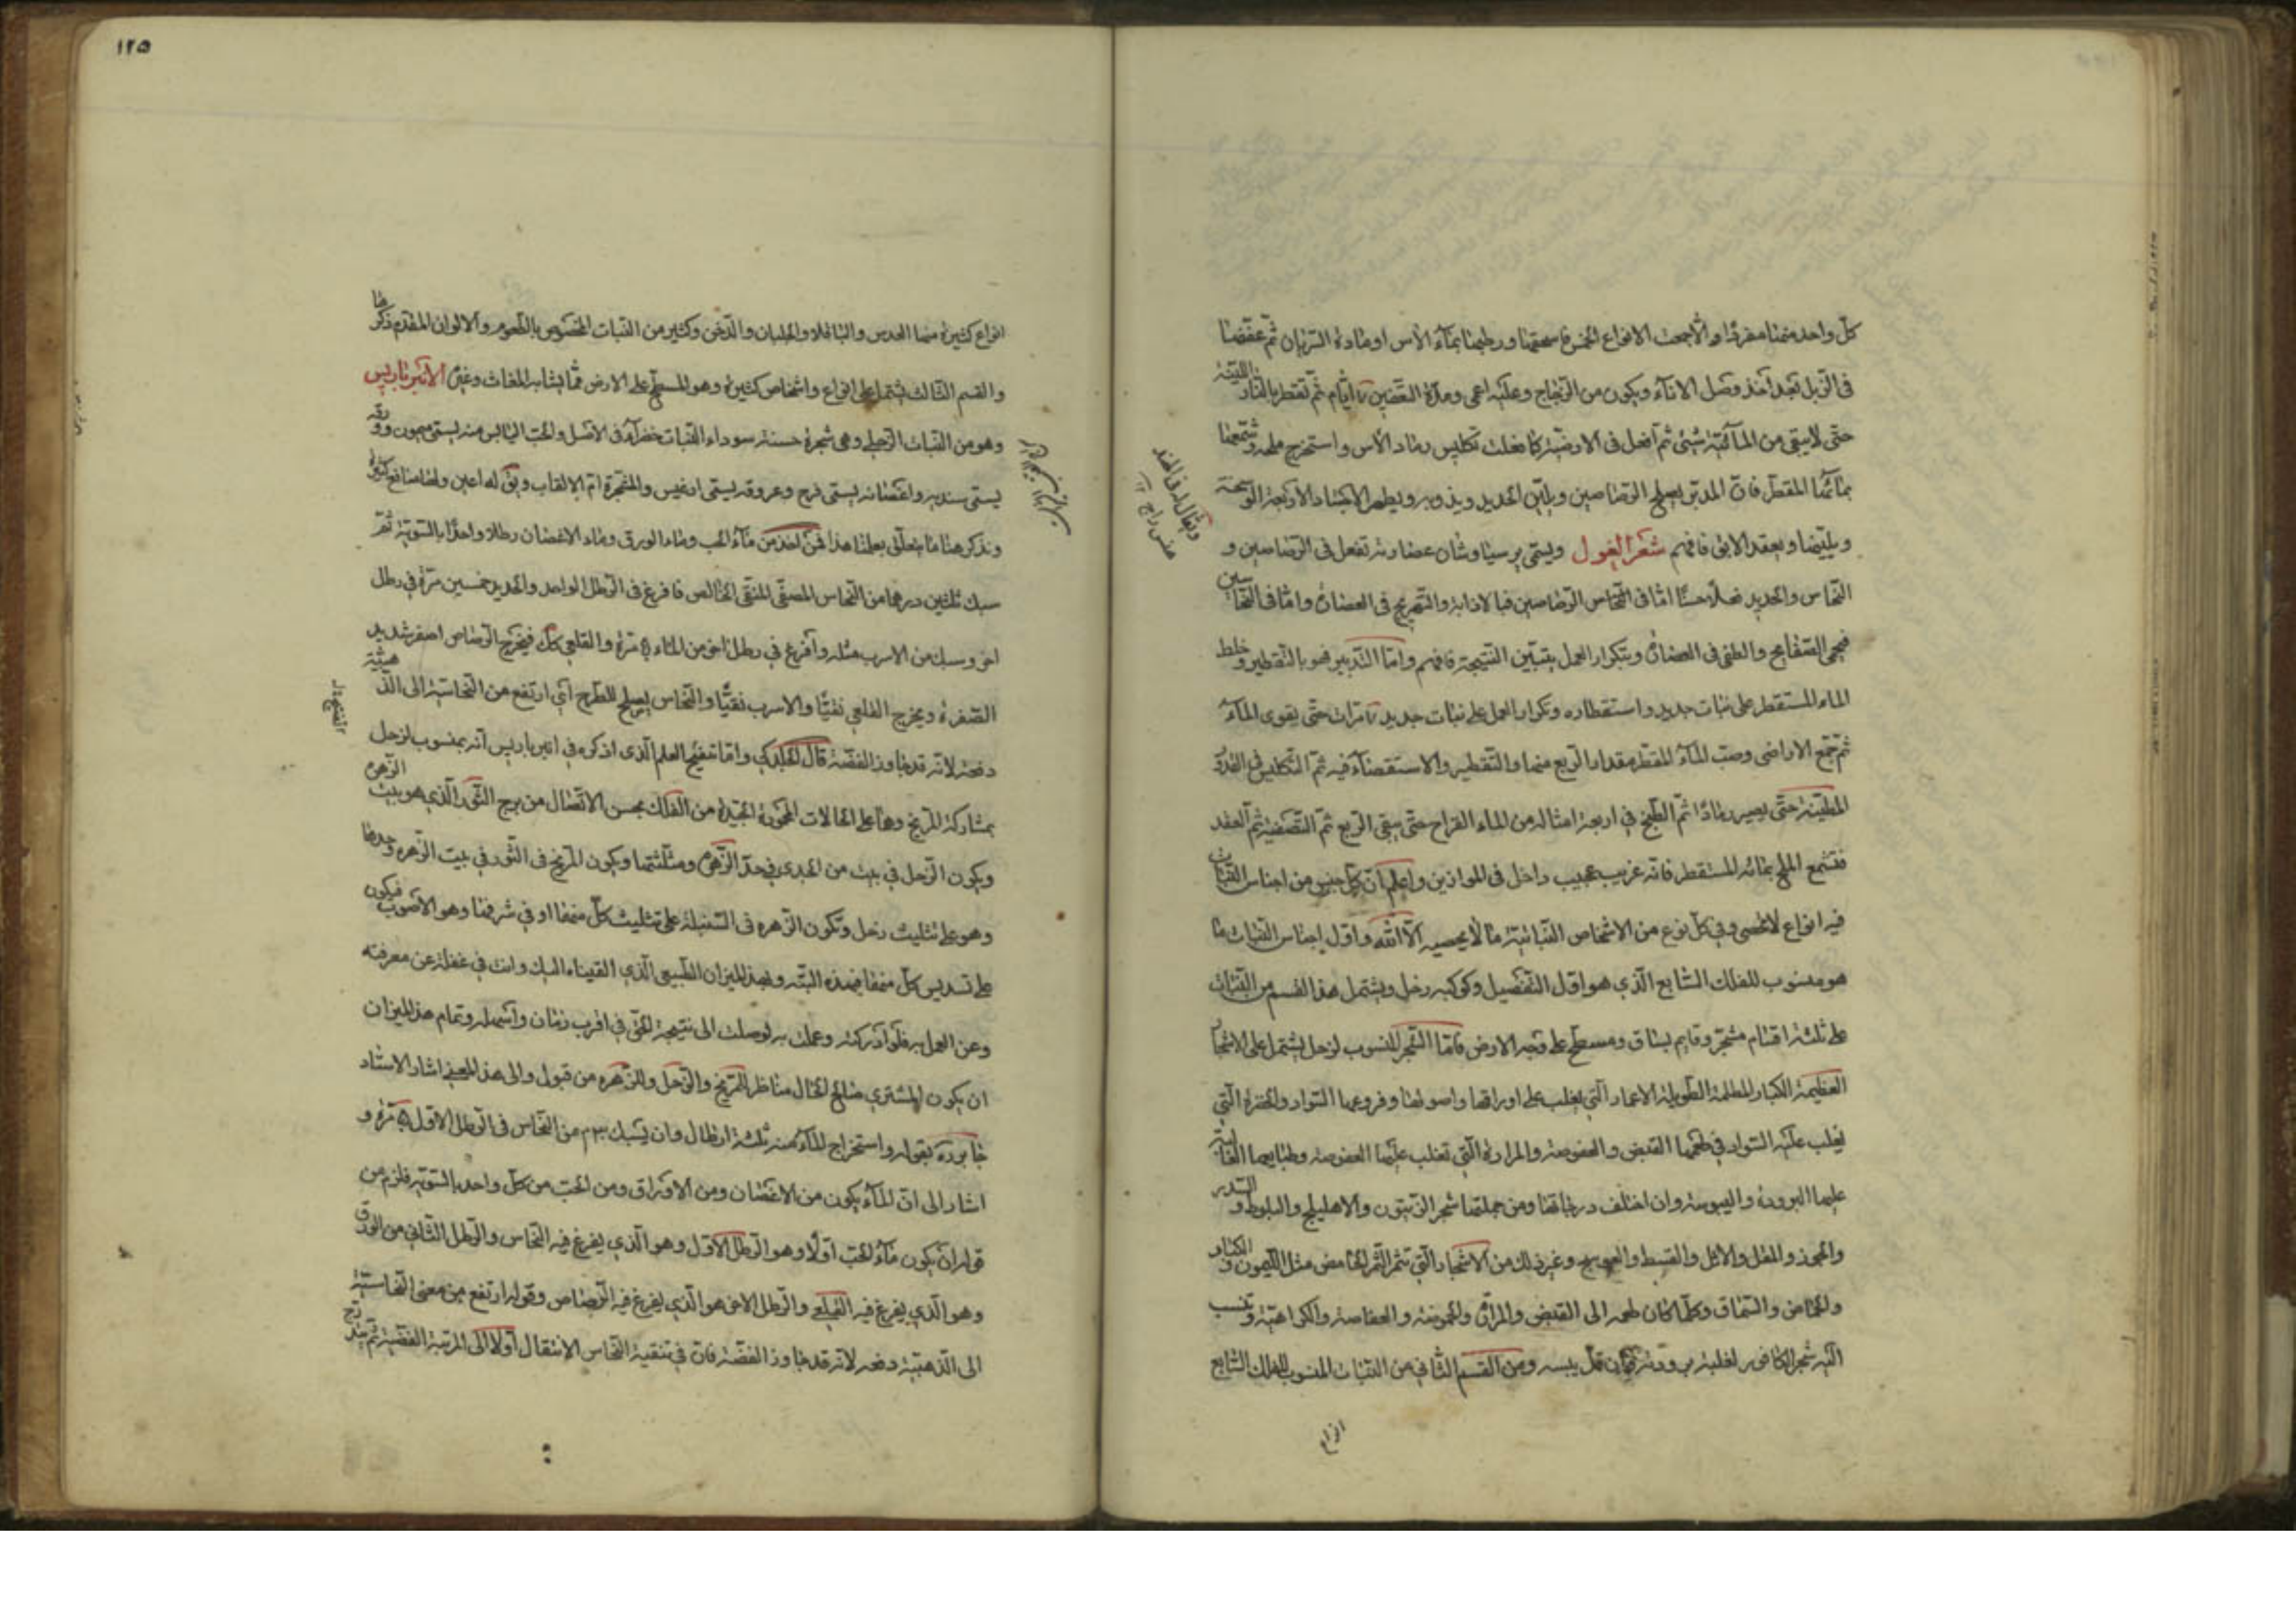 كل واحد منها مفردا والا جمعت الانواع الخمر فاسحقها ورطبها بماء الآس او مادة السريان ثم عفنها
فى الزبل بعد اخذ وصل الاناء ويكون من الزجاج وعليه اعمى ومدة التعفين ايام ثم تقطر بالنار اللينة
حتى لا يبقى من المائية شئ ثم افعل فى الارضية كما فعلت تكليس رماد الآس واستخرج ملحه وشمعها
بمائها المقطر فان المدبر يصلح الرصاصين ويلين الحديد ويذوبه ويطهر الاجساد الاربعة الوسخة
ويلينها ويعقد الابق فافهم شعر الغول ويسمى برسياوشان عصارته تفعل فى الرصاصين و
النحاس والحديد فعلا حسنا اما فى النحاس الرصاصين فبالاذابة والتفريغ فى العصارة واما فى النحاسين
فبحمى الصفايح والطفى فى العصارة وبتكرار العمل يتبين النتيجة فافهم واما التدبير فهو بالتقطير وخلط
الماء المستقطر على نبات جديد واستقطاره وتكرار العمل على نبات جديد مرات حتى يقوى الماء
ثم جمع الاراضى وصب الماء المقطر مقدار الربع منها والتقطير والاستقصاء فيه ثم التكليس فى القدرة
المطينة حتى يصير رمادا ثم الطبخ فى اربعة امثاله من الماء القراح حتى يبقى الربع ثم التصفية ثم العقد
فتشمع الملح بمائه المستقطر فانه غريب عجيب داخل فى الموازين واعلم ان كل جنس من اجناس النبات
فيه انواع لا تحصى وفى كل نوع من الاشخاص النباتية ما لا يحصيه الا الله واول اجناس النبات ما
هو منسوب للفلك السابع الذي هو اول التفصيل وكوكبه زحل ويشتمل هذا القسم من النبات
على ثلثة اقسام مشجر وقايم بساق ومسطح على وجه الارض فاما الشجر المنسوب لزحل يشتمل على الاشجار
العظيمة الكبار المظلمة الطويلة الاعمار التي يغلب على اوراقها واصولها وفروعها السواد والخضرة التي
يغلب عليه السواد فى طعمها القبض والعفوصة والمرارة التي تغلب عليها العفوصة وطبايعها الغالبة
عليها البرودة واليبوسة وان اختلف درجاتها ومن جملتها شجر الزيتون والاهليلج والبلوط والسدر
والجوز والمقل والاثل والقسط والعوسج وغير ذلك من الاشجار التي تثمر الثمر الحامض مثل الليمون والكباد
والحماض والسماق وكلما كان طعمه الى القبض والمرارة والحموضة والعفاصة والكراهية وتنسب
اليه شجر الكافور لغلبة برودته وان قل يبسه ومن القسم الثاني من النبات المنسوب للفلك السابع
انواع
ويقال له
١٢٥
انواع كثيرة منها العدس والباقلا والجلبان والدخن وكثير من النبات المخصوص بالطعوم والالوان المقدم ذكرها
والقسم الثالث يشتمل على انواع واشخاص كثيرة وهو المسطح على الارض مما يشابه المغاث وغيره الانبرباريس
وهو من النبات الزحلي وهى شجرة حسنة سوداء النبات خضراء فى الاصل والحب اليابس منه يسمى ميمون وورقه
يسمى سنديه واغصانه يسمى فرج وعروقه يسمى ارغيس والمشجرة ام الالقاب وبق له اعين ولها منافع كثيرة
ونذكر هنا ما يتعلق بعلمنا هذا فمن اخذ من ماء الحب وماء الورق وماء الاغصان رطلا واحدا بالسوية ثم
سبك ثلثين درهما من النحاس المصفى المنقى الخالص فافرغ فى الرطل الواحد والحديد خمسين مرة في رطل
اخر وسبك من الاسرب مثله وافرغ في رطل اخر من الماء مرة والقلعي كك فيخرج الرصاص اصفر شديد
الصفرة ويخرج القلعى نقيا والاسرب نقيا والنحاس يصلح للطرح اي ارتفع من النحاسية الى الذهبية
دفعة لانه قد جاوز الفضة قال الجلدكي واما تنقيح العلم الذى اذكره في انبرباريس انه بمنسوب لزحل
بمشاركة المريخ وهما على الحالات المحمودة الجيدة من الفلك بحسن الاتصال من برج الثور الذي هو بيت الزهره
ويكون الزحل في بيت من الجدى في حد الزهرة ومثلثتها ويكون المريخ فى الثور في بيت الزهره وحدها
وهو على تثليث زحل وتكون الزهره فى السنبلة على تثليث كل منهما او في شرفها وهو الاصوب فيكون
على تسديس كل منهما فهذه البتة وهذا الميزان الطبيعى الذي القيناه اليك وانت في غفلة عن معرفته
وعن العمل به فلو ادركته وعملت به لوصلت الى نتيجة الحق في اقرب زمان واسهله وتمام هذا الميزان
ان يكون المشتري صالح الحال مناظر للمريخ والزحل وللزهره من قبول والى هذا المعنى اشار الاستاد
جابر بقوله واستخراج الماء منه ثلثة ارطال وان يسبك من النحاس فى الرطل الاول مرة و
اشار الى ان الماء يكون من الاغصان ومن الاوراق ومن الحب من كل واحد بالسوية فلزم من
قوله ان يكون ماء الحب اولا وهو الرطل الاول وهو الذي يفرغ فيه النحاس والرطل الثاني من الورق
وهو الذي يفرغ فيه القلعي والرطل الاخر هو الذي يفرغ فيه الرصاص وقوله ارتفع من معنى النحاسية
الى الذهبية دفعة لانه قد جاوز الفضة فان في تنقية النحاس الانتقال اولا الى المرتبة الفضية ثم يتدرج